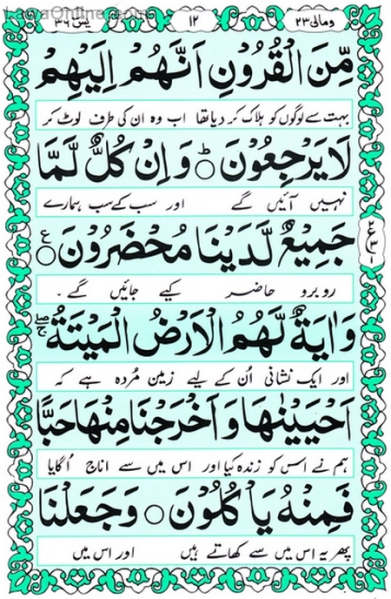 ومالی ٢٣ ١٢ یٰسٓ ٣٦
مِّنَ الْقُرُوْنِ اَنَّهُمْ اِلَیْهِمْ
بہت سے لوگوں کو ہلاک کر دیا تھا اب وہ ان کی طرف لوٹ کر
لَا یَرْجِعُوْنَ ؕ وَ اِنْ كُلٌّ لَّمَّا
نہیں آئیں گے اور سب کے سب ہمارے
جَمِیْعٌ لَّدَیْنَا مُحْضَرُوْنَ ۠
روبرو حاضر کیے جائیں گے۔
وَ اٰیَةٌ لَّهُمُ الْاَرْضُ الْمَیْتَةُ ۖۚ
اور ایک نشانی اُن کے لیے زمین مُردہ ہے کہ
اَحْیَیْنٰهَا وَ اَخْرَجْنَا مِنْهَا حَبًّا
ہم نے اس کو زندہ کیا اور اس میں سے اناج اُگایا
فَمِنْهُ یَاْكُلُوْنَ وَ جَعَلْنَا
پھر یہ اس میں سے کھاتے ہیں اور اس میں